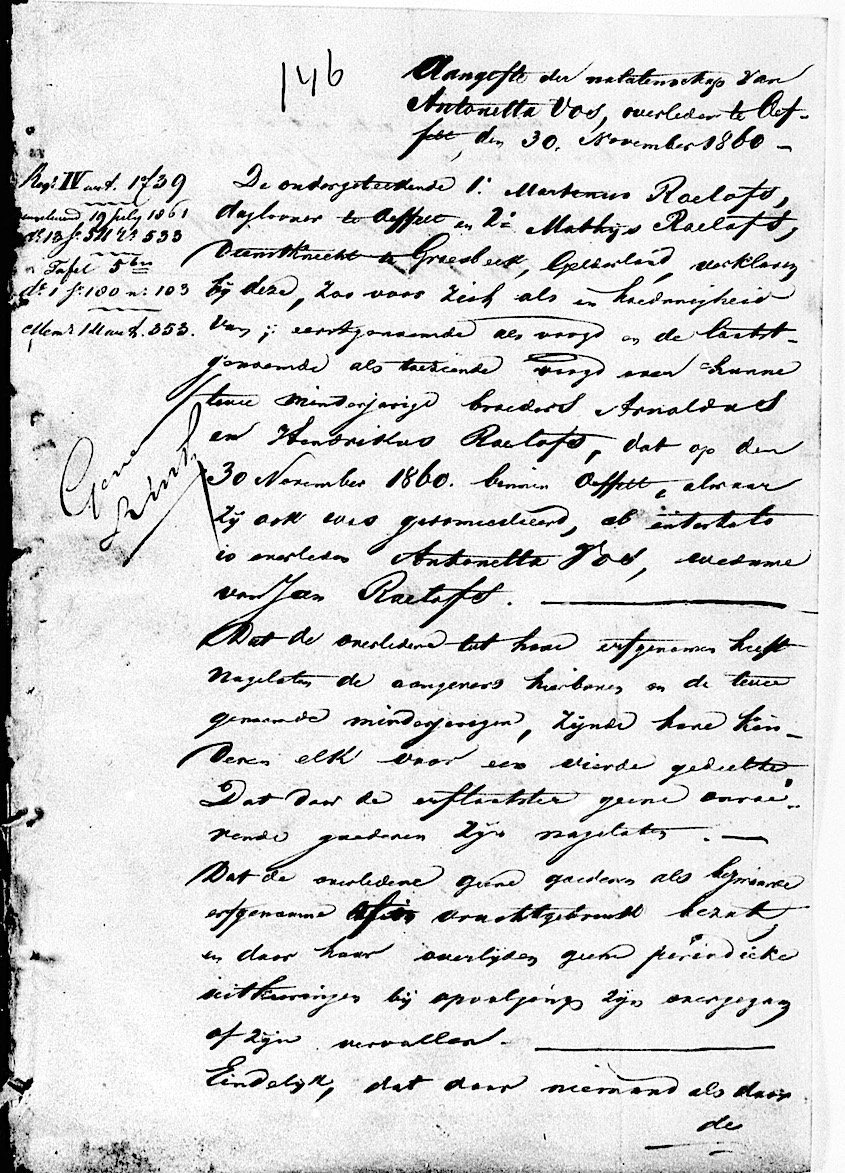 146
Aangifte der nalatenschap van
Antonetta Vos, overleden te Oef-
felt, den 30. November 1860 -
Reg: IV art. 1739
19 July 1861
dl: 13 f: 54 n: 533
Tafel 5
dl: 1 f: 180 n: 103
Mem: 1 art. 353.
Geene
De ondergeteekende 1: Martinus Roelofs,
daglooner te Oeffelt en 2: Mathijs Roelofs,
dienstknecht te Groesbeek, Gelderland, verklaren
bij deze, zoo voor zich als in hoedanigheid
van ; eerstgenoemde als voogd en de laatst-
genoemde als toeziende voogd over hunne
twee minderjarige broeders Arnoldus
en Hendrikus Roelofs, dat op den
30 November 1860. binnen Oeffelt, alwaar
zij ook was gedomicilieerd, ab intestato
is overleden Antonetta Vos, weduwe
van Jan Roelofs.
Dat de overledene tot hare erfgenamen heeft
nagelaten de aangevers hierboven en de twee
genoemde minderjarigen, zijnde hare kin-
deren elk voor een vierde gedeelte
Dat door de erflaatster geene onroe-
rende goederen zijn nagelaten.
Dat de overledene geene goederen als bezwaarde
erfgename of in vruchtgebruik bezat,
en door haar overlijden geene periodieke
uitkeeringen bij opvolging zijn overgegaan
of zijn vervallen.
Eindelijk, dat door niemand als door
de